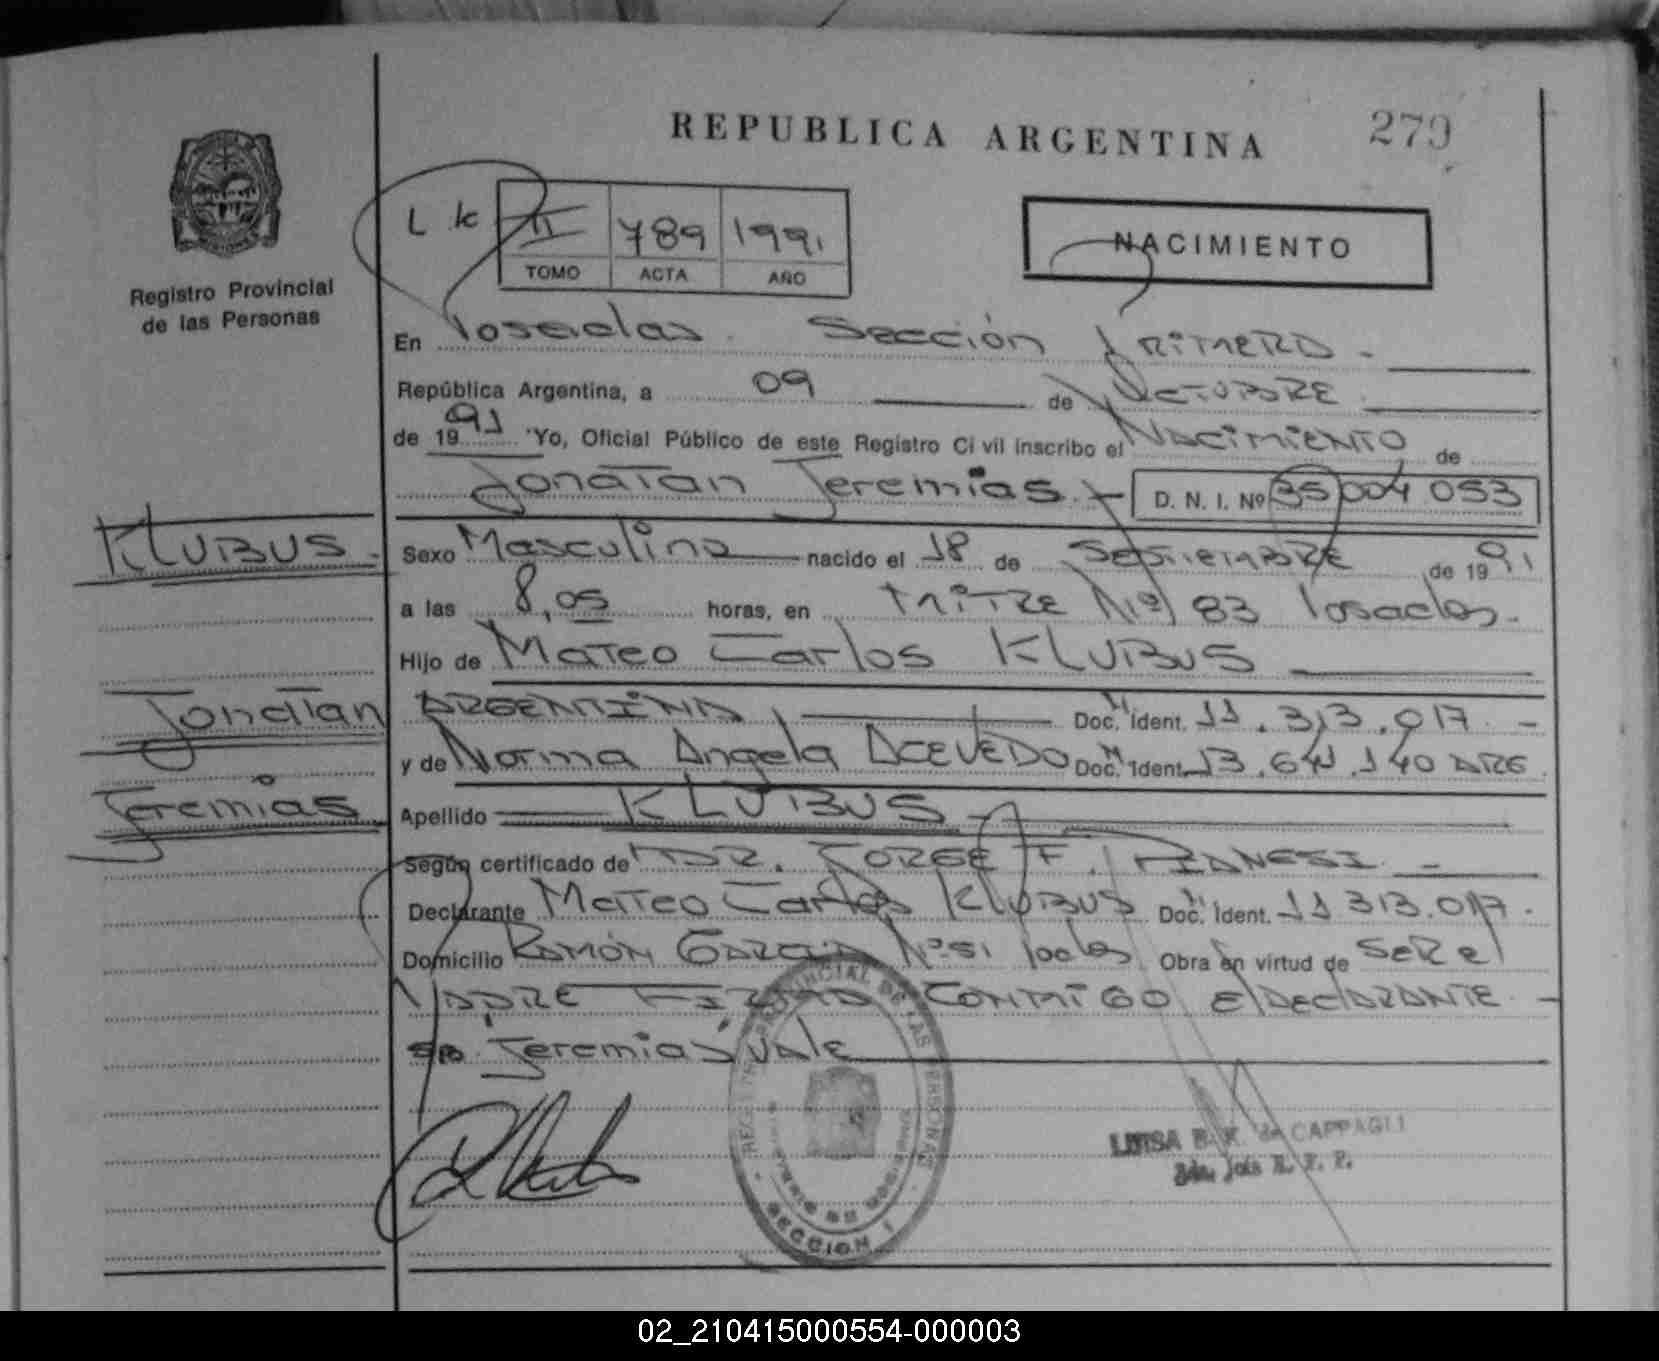 REPUBLICA ARGENTINA
279
Registro Provincial
de las Personas
L k
II 789 1991
TOMO ACTA AÑO
NACIMIENTO
En Posadas. Sección Primera.
República Argentina, a 09 de Octubre
de 1991 Yo, Oficial Público de este Registro Civil inscribo el Nacimiento de
Jonatan Jeremias. D. N. I. Nº 35 004 053
KLUBUS. Sexo Masculino nacido el 18 de Septiembre de 1991
a las 8,05 horas, en Mitre Nº 83 Posadas.
Hijo de Mateo Carlos KLUBUS
Jonatan ARGENTINA Doc. Ident. 11.313.017
y de Norma Angela ACEVEDO Doc. Ident. 13.641.140 ARG
Jeremias Apellido KLUBUS
Según certificado de JORGE F.
Declarante Mateo Carlos KLUBUS Doc. Ident. 11 313.017.
Domicilio RAMÓN GARCIA Nº 51 Pdas Obra en virtud de SER el
PADRE FIRMA CONMIGO El DECLARANTE.
Jeremias VALE
REGISTRO PROVINCIAL DE LAS PERSONAS
PROVINCIA DE MISIONES
SECCION 1
LUISA B. K. de CAPPAGLI
R. P. P.
02_210415000554-000003